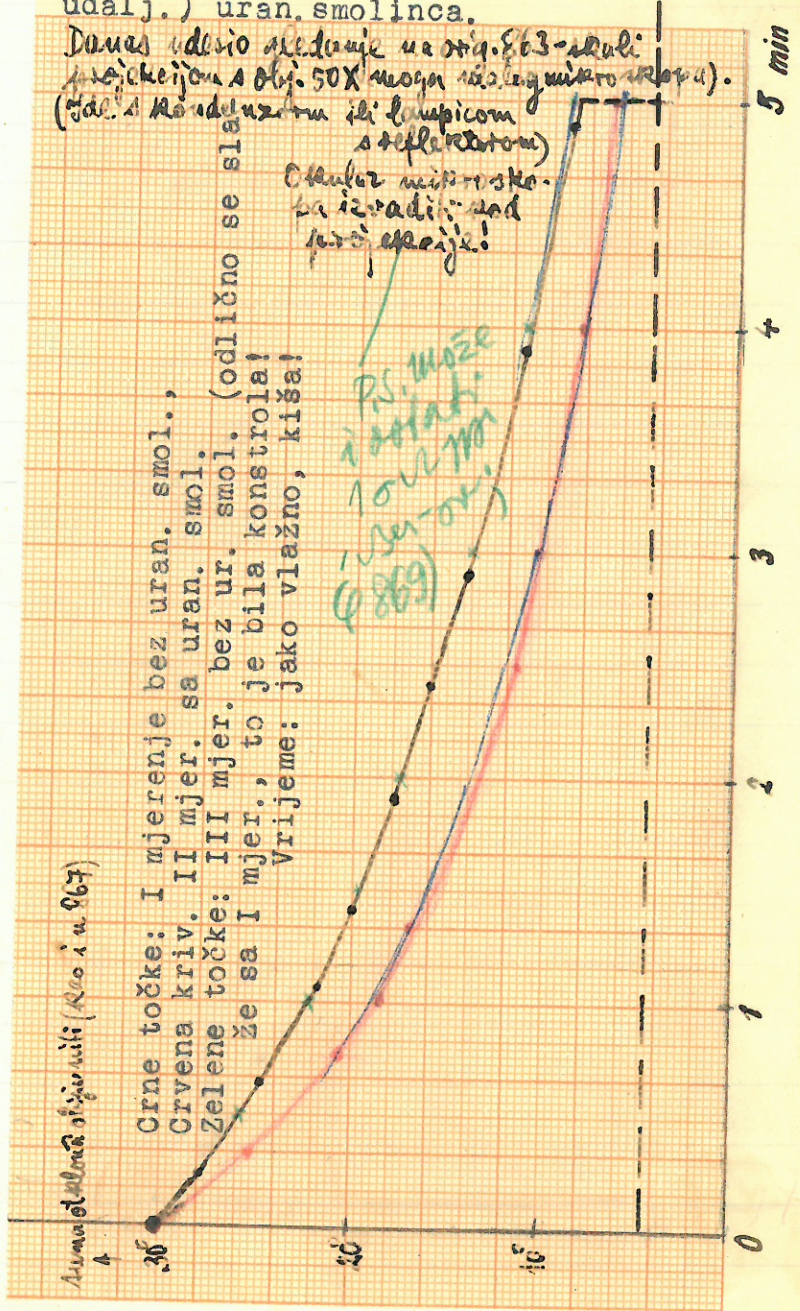 udalj.) uran.smolinca.
Danas udesio gledanje na orig. 863-skali
projekcijom s obj. 50X moga mikroskopa).
(Ide s kondenzorom ili lampicom
s reflektorom)
Okular mikrosko-
pa izvaditi kod
projekcije!
P.S. može
i ostati
869)
Crne točke: I mjerenje bez uran. smol.,
Crvena kriv. II mjer. sa uran. smol.
Zelene točke: III mjer. bez ur. smol. (odlično se sla
že sa I mjer., to je bila konstrola!
Vrijeme: jako vlažno, kiša!
suma otklona obiju niti (kao i u 867)
30°
20°
10°
0
1
2
3
4
5 min